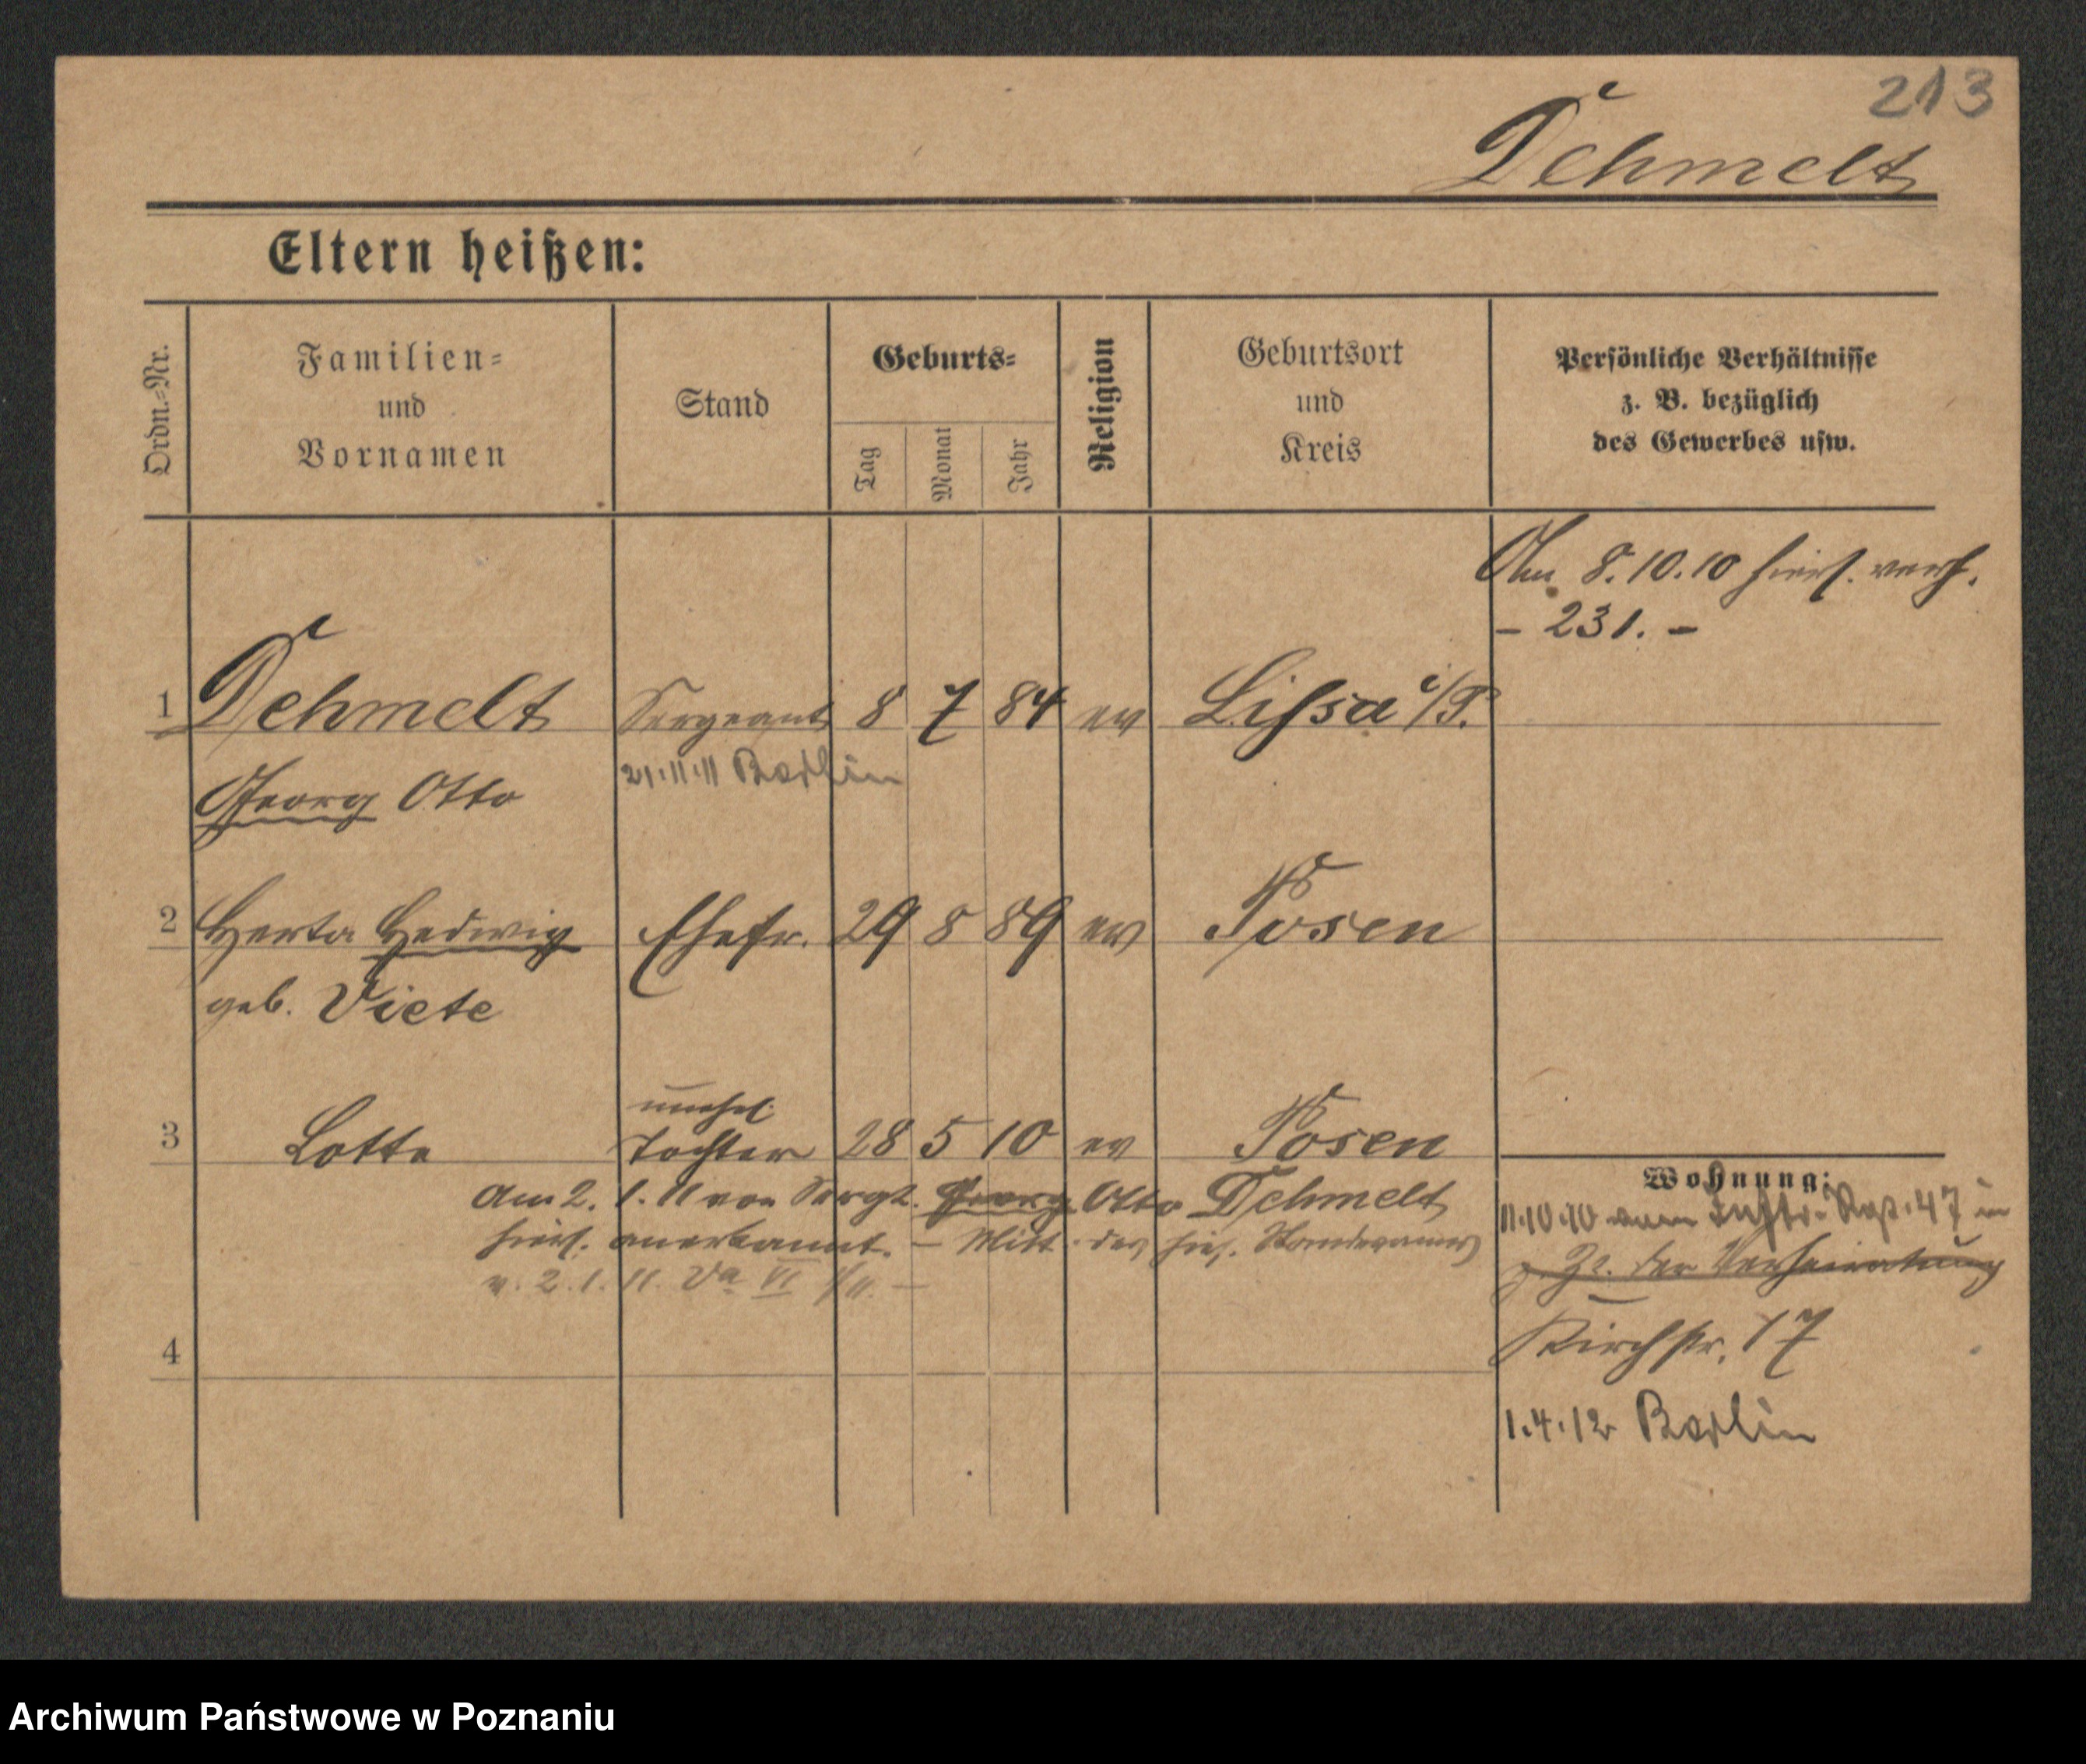 213
Dehmelt
Eltern heißen:
Ordn.-Nr.
Familien-
und
Vornamen
Stand
Geburts-
Tag
Monat
Jahr
Religion
Geburtsort
und
Kreis
Persönliche Verhältnisse
z. B. bezüglich
des Gewerbes usw.
Am 8.10.10 hiers. verh.
– 231. –
1 Dehmelt Sergeant 8 7 84 ev Lissa i/P.
21.11.11 Berlin
Georg Otto
2 Herta Hedwig Ehefr. 29 8 89 ev Posen
geb. Viete
unehel.
3 Lotte Tochter 28 5 10 ev Posen
Wohnung:
Am 2. 1. 11 von Sergt. Georg Otto Dehmelt
hiers. anerkannt. – Mitt. des hies. Standesamts
v. 2. 1. 11. Va VI
11.10.10 vom Inftr. Rgt. 47 in
z. Zt. der Verheiratung
Kirchstr. 17
4
1.4.12 Berlin
Archiwum Państwowe w Poznaniu